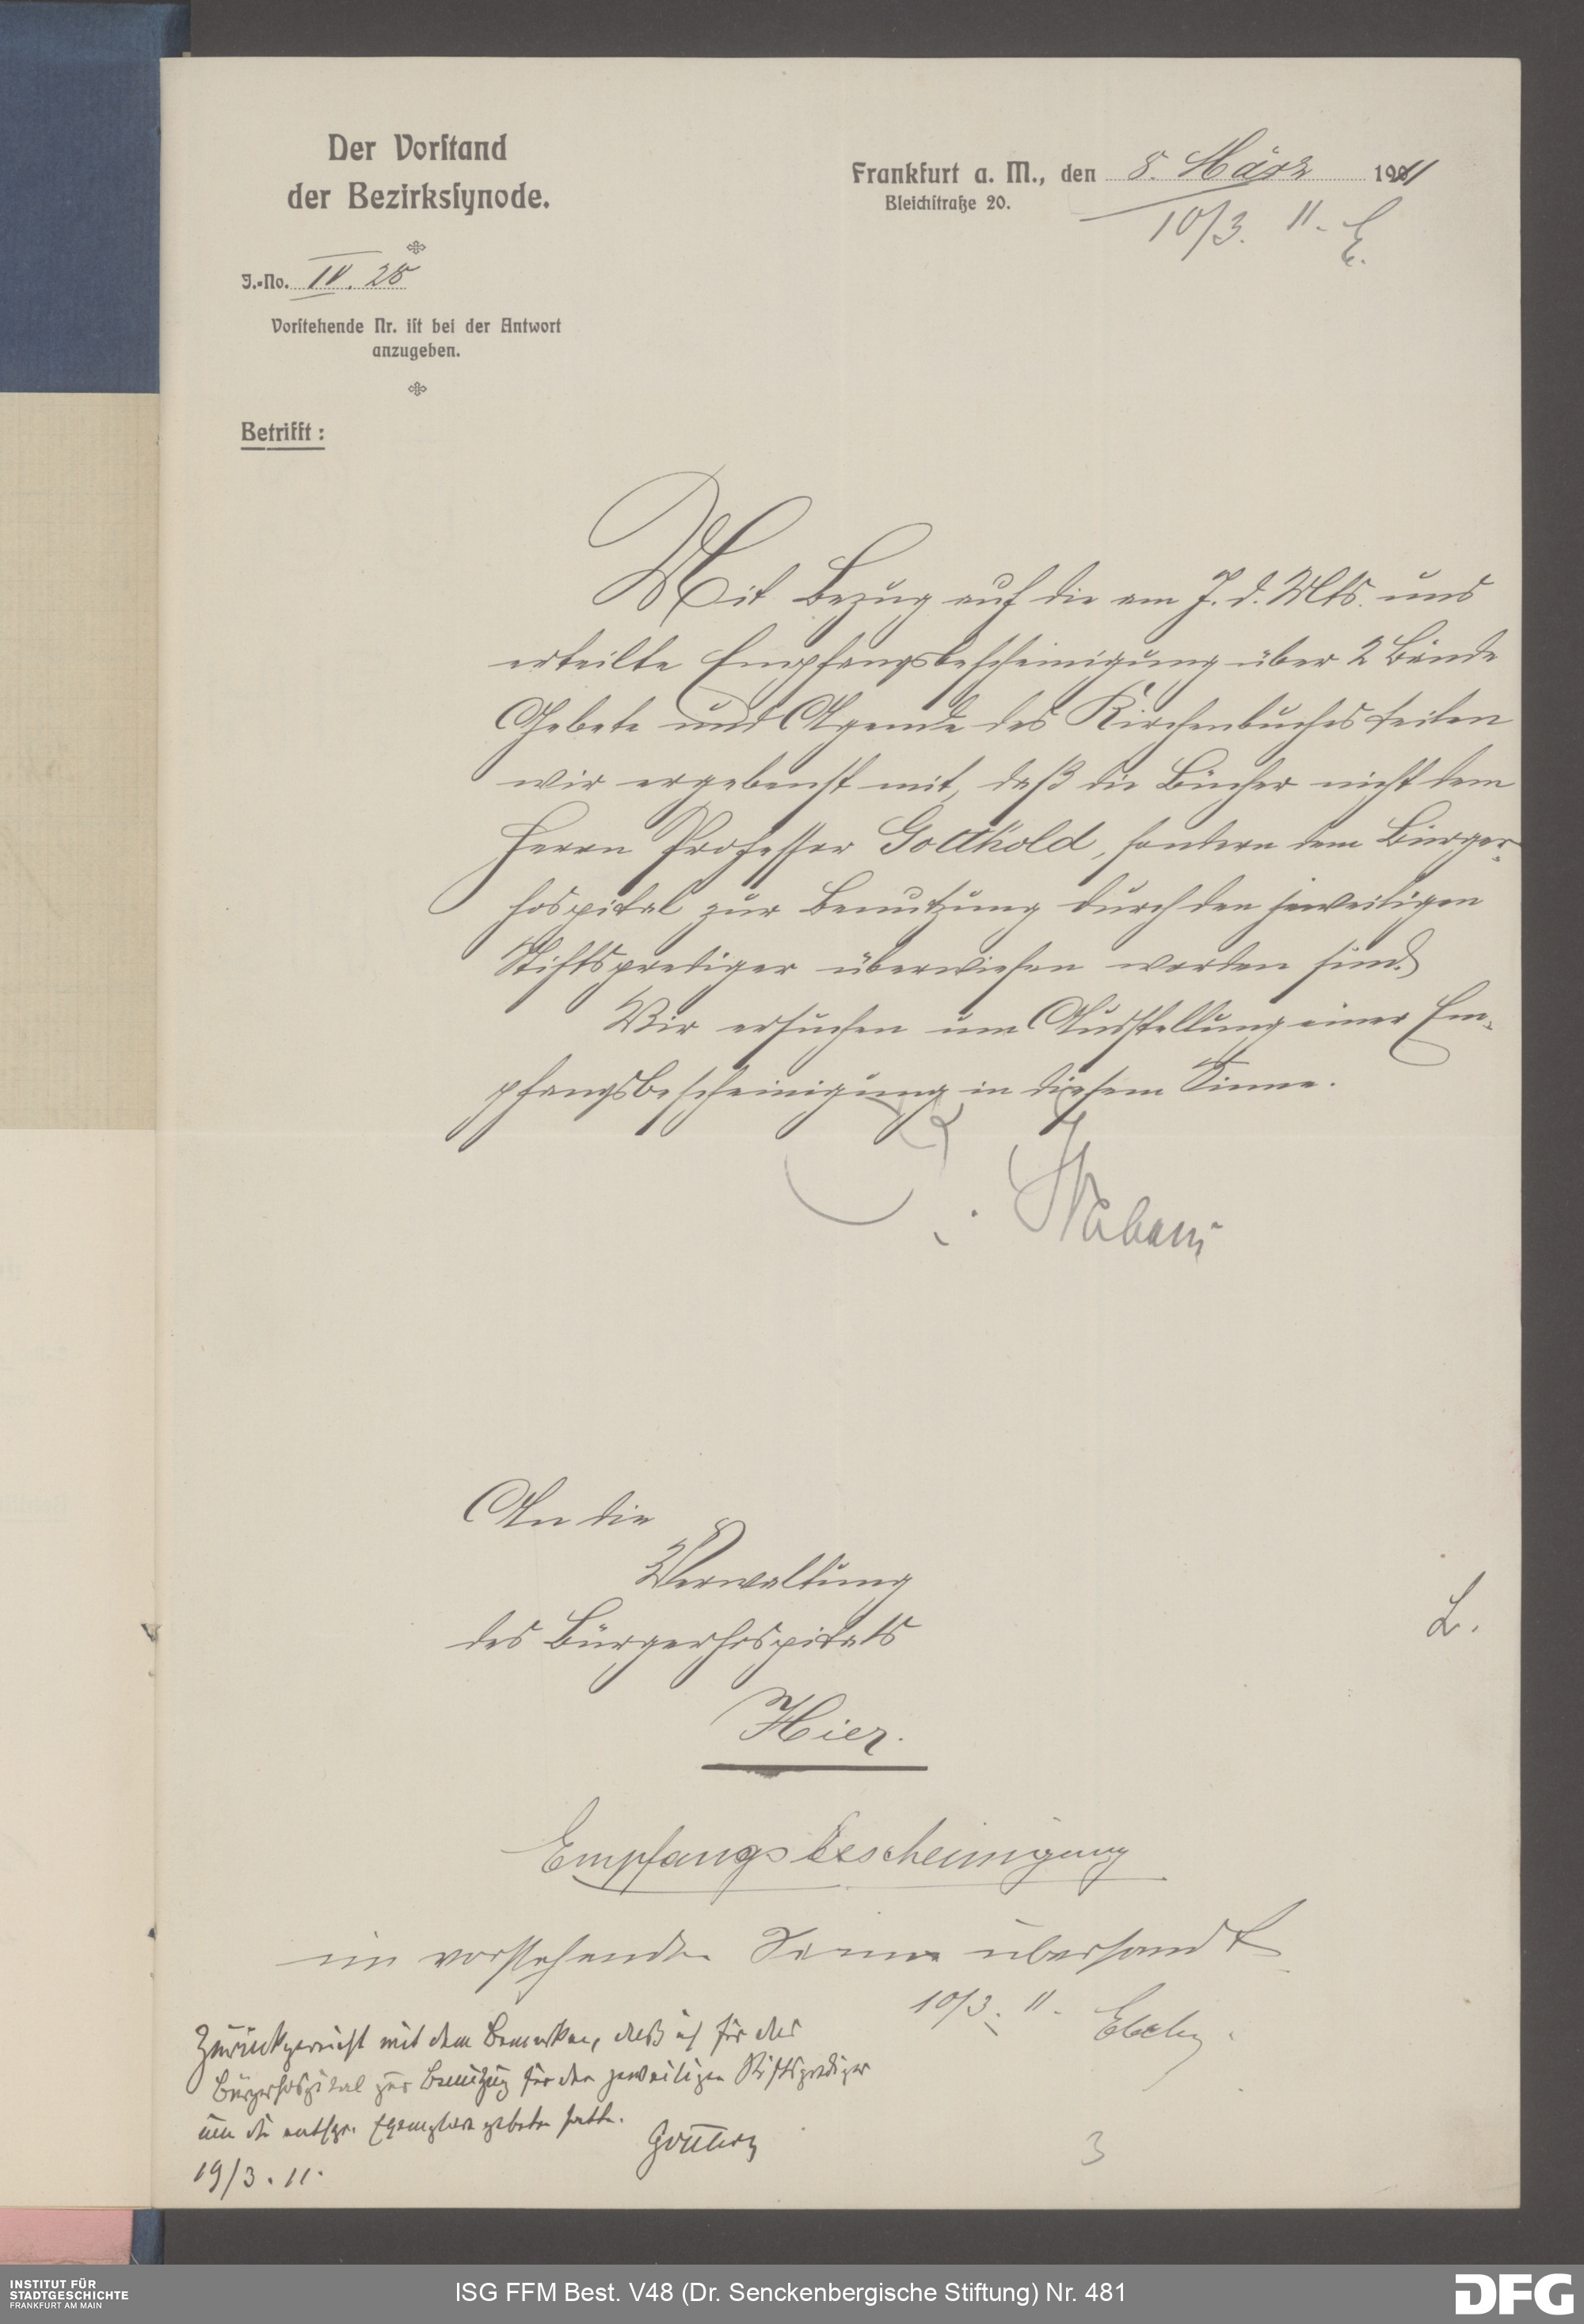 Der Vorstand
der Bezirkssynode.
Frankfurt a. M., den 8. März 1911
Bleichstraße 20.
10/3. 11. E.
J.-No. IV. 25
Vorstehende Nr. ist bei der Antwort
anzugeben.
Betrifft:
Mit Bezug auf die am 7. d. Mts. uns
erteilte Empfangsbescheinigung über 2 Bände
Gebete und Agende des Kirchenbuches teilen
wir ergebenst mit, daß die Bücher nicht dem
Herrn Professor Gotthold, sondern dem Bürger-
hospital zur Benutzung durch den jeweiligen
Stiftsprediger überwiesen worden sind.
Wir ersuchen um Ausstellung einer Em-
pfangsbescheinigung in diesem Sinne.
An die
Verwaltung
des Bürgerhospitals
L.
Hier.
Empfangsbescheinigung
im vorstehenden Sinne übersandt
10/3. 11.
Zurückgereicht mit dem Bemerken, daß ich für das
Bürgerhospital zur Benutzung für den jeweiligen Stiftsprediger
um die entspr. Exemplare gebeten hatte.
Gotthold
19/3. 11.
3
INSTITUT FÜR
STADTGESCHICHTE
FRANKFURT AM MAIN
ISG FFM Best. V48 (Dr. Senckenbergische Stiftung) Nr. 481
DFG